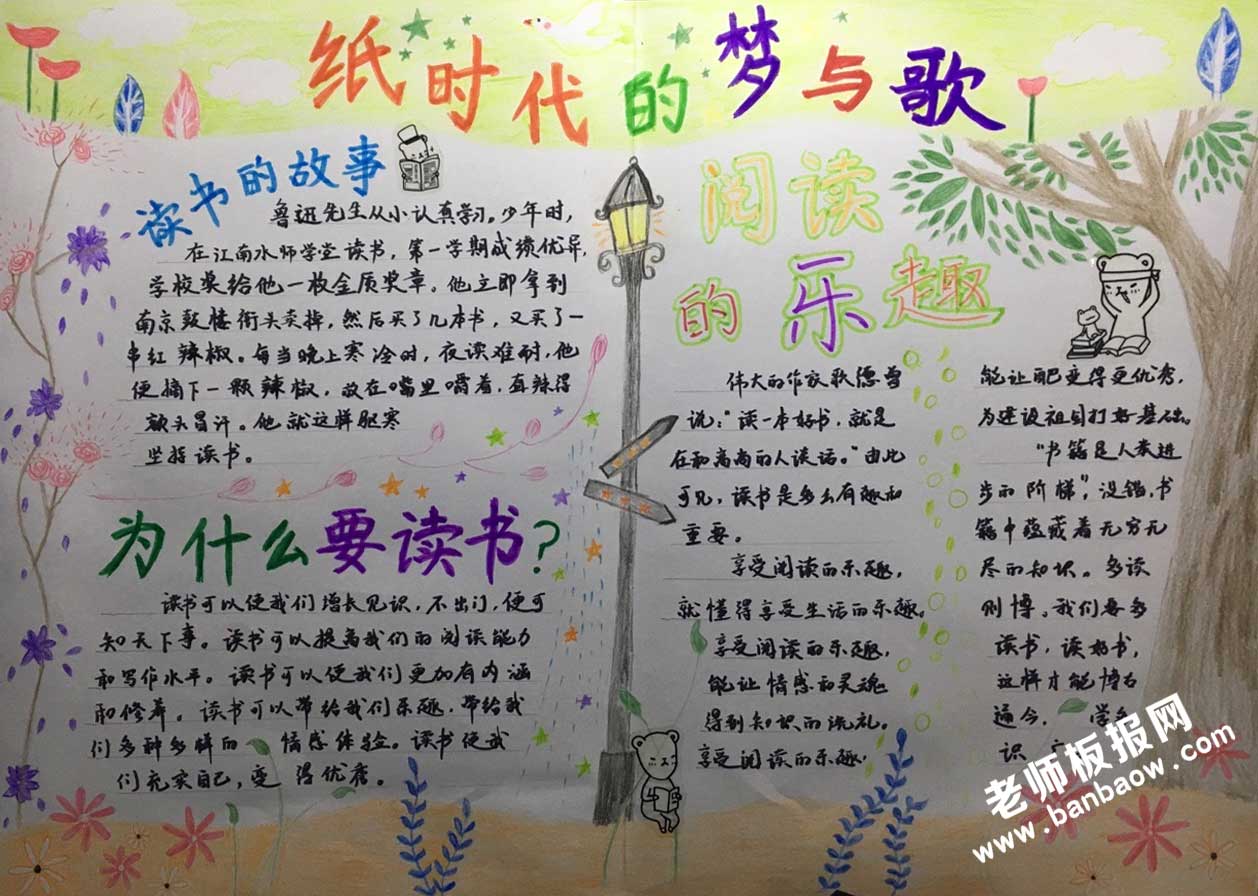 纸时代的梦与歌
读书的故事
鲁迅先生从小认真学习。少年时，
在江南水师学堂读书，第一学期成绩优异，
学校奖给他一枚金质奖章。他立即拿到
南京鼓楼街头卖掉，然后买了几本书，又买了一
串红辣椒。每当晚上寒冷时，夜读难耐，他
便摘下一颗辣椒，放在嘴里嚼着，直辣得
额头冒汗。他就这样驱寒
坚持读书。
为什么要读书？
读书可以使我们增长见识，不出门，便可
知天下事。读书可以提高我们的阅读能力
和写作水平。读书可以使我们更加有内涵
和修养。读书可以带给我们乐趣，带给我
们多种多样的情感体验。读书使我
们充实自己，变得优秀。
阅读
的乐趣
伟大的作家歌德曾
说：“读一本好书，就是
在和高尚的人谈话。”由此
可见，读书是多么有趣和
重要。
享受阅读的乐趣，
就懂得享受生活的乐趣。
享受阅读的乐趣，
能让情感和灵魂
得到知识的洗礼。
享受阅读的乐趣，
能让自己变得更优秀，
为建设祖国打好基础。
“书籍是人类进
步的阶梯”，没错，书
籍中蕴藏着无穷无
尽的知识。多读
则博。我们要多
读书，读好书，
这样才能博古
通今，学
识
老师板报网
www.banbaow.com